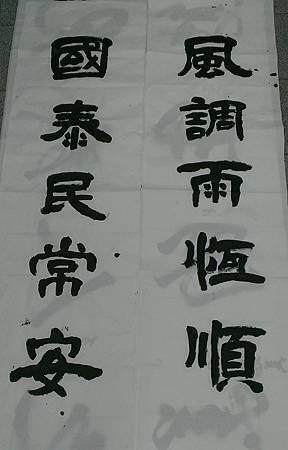 風調雨恆順
國泰民常安